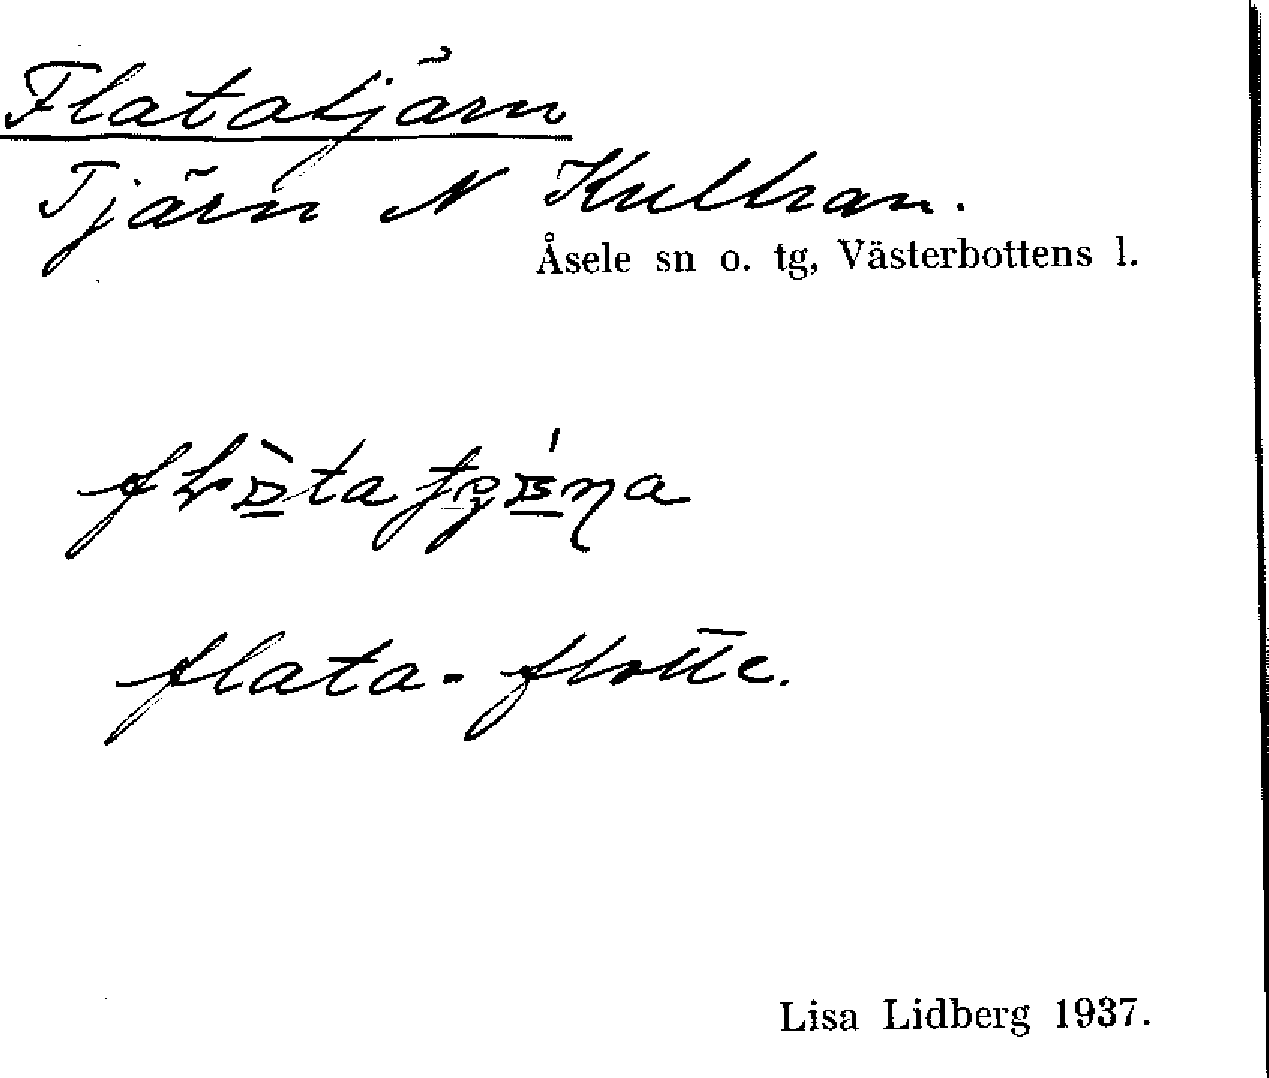 Flatatjärn
Tjärn N Kultran.
Åsele sn o. tg, Västerbottens l.
flata - flotte.
Lisa Lidberg 1937.